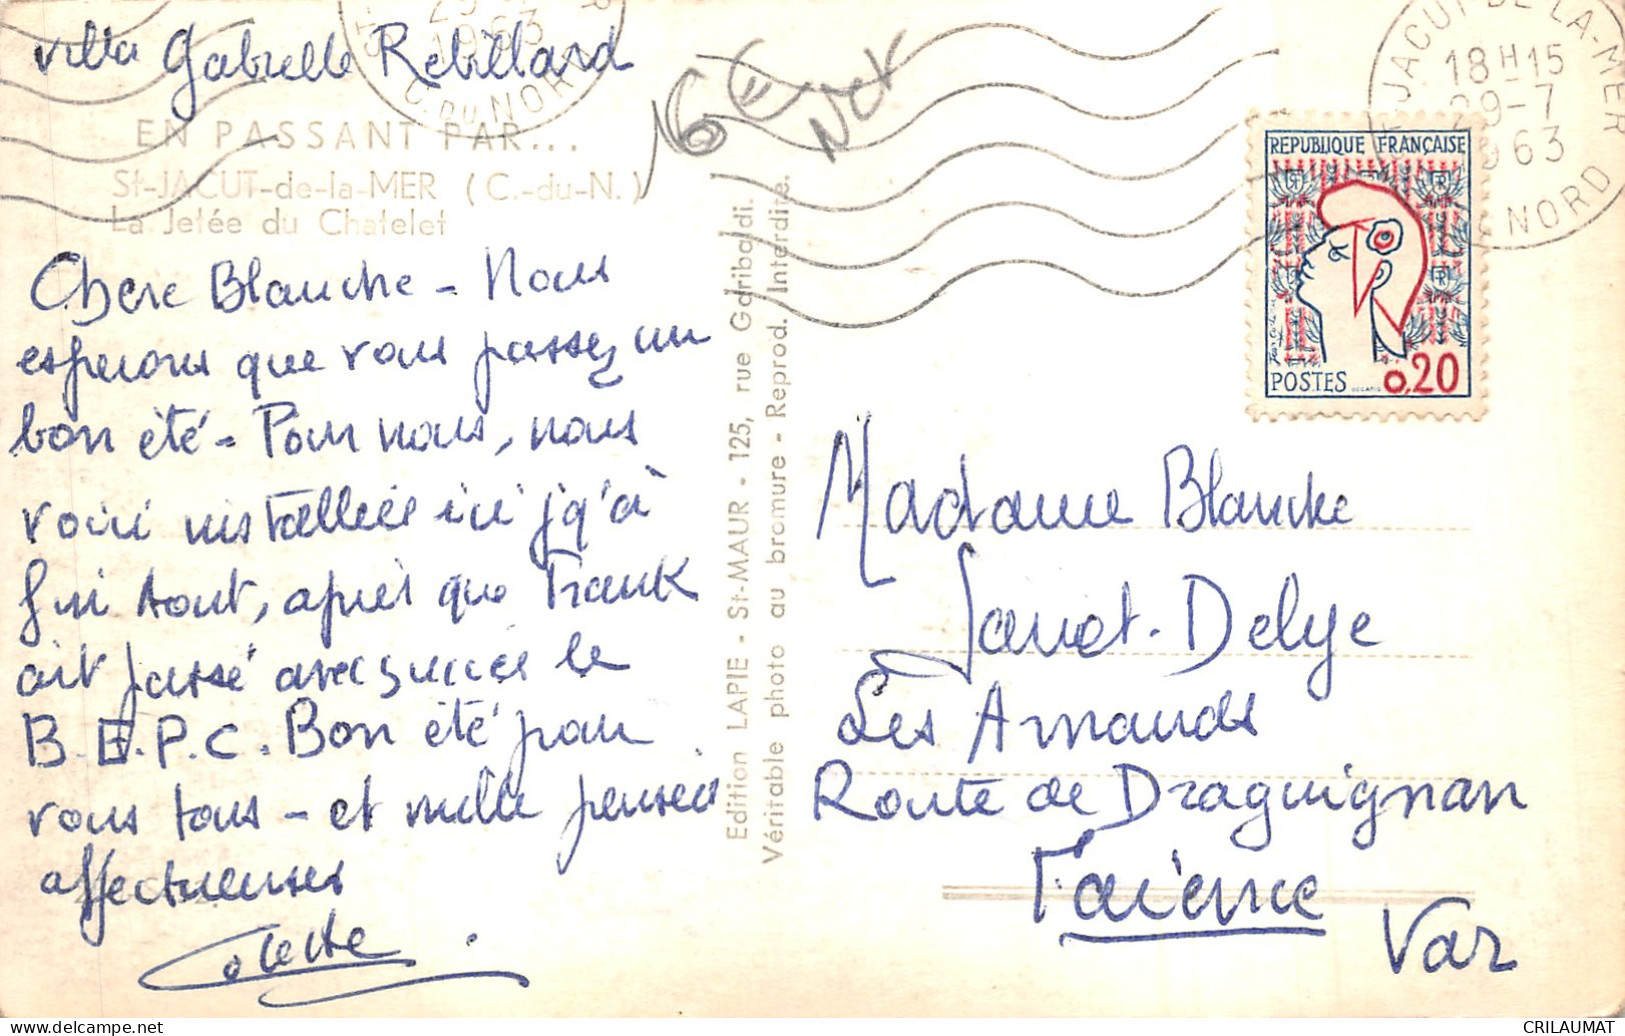 Villa Gabrielle Rebillard
EN PASSANT PAR...
St-JACUT-de-la-MER (C.-du-N.)
La Jetée du Chatelet
Chere Blanche - Nous
esperons que vous passez un
bon été - Pour nous, nous
voici installées ici jq'à
fin Aout, après que Franck
ait passé avec succès le
B.E.P.C. Bon été pour
vous tous - et mille pensées
affectueuses
Colette
16 € Net
Edition LAPIE - St-MAUR - 125, rue Garibaldi.
Véritable photo au bromure - Reprod. Interdite.
29
1963
C. DU NORD
JACUT-DE-LA-MER
18H15
29-7
1963
NORD
REPUBLIQUE FRANÇAISE
POSTES 0,20
Madame Blanche
Janot-Delye
Les Arnauds
Route de Draguignan
Faïence
Var
CRILAUMAT